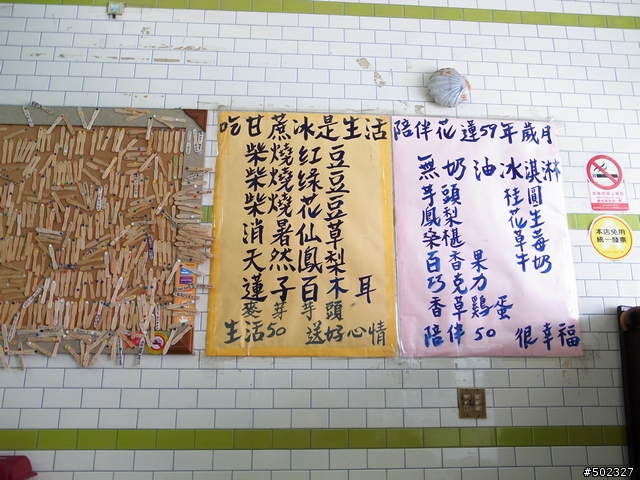 吃甘蔗冰是生活
柴燒紅豆
柴燒綠豆
柴燒花豆
消暑仙草
天然鳳梨
蓮子百木耳
麥芽芋頭
生活50 送好心情
陪伴花蓮59年歲月
無奶油冰淇淋
芋頭 桂圓
鳳梨 花生
桑椹 草莓
百香果 牛奶
巧克力
香草雞蛋
陪伴50 很幸福
本店免用
統一發票
#502327